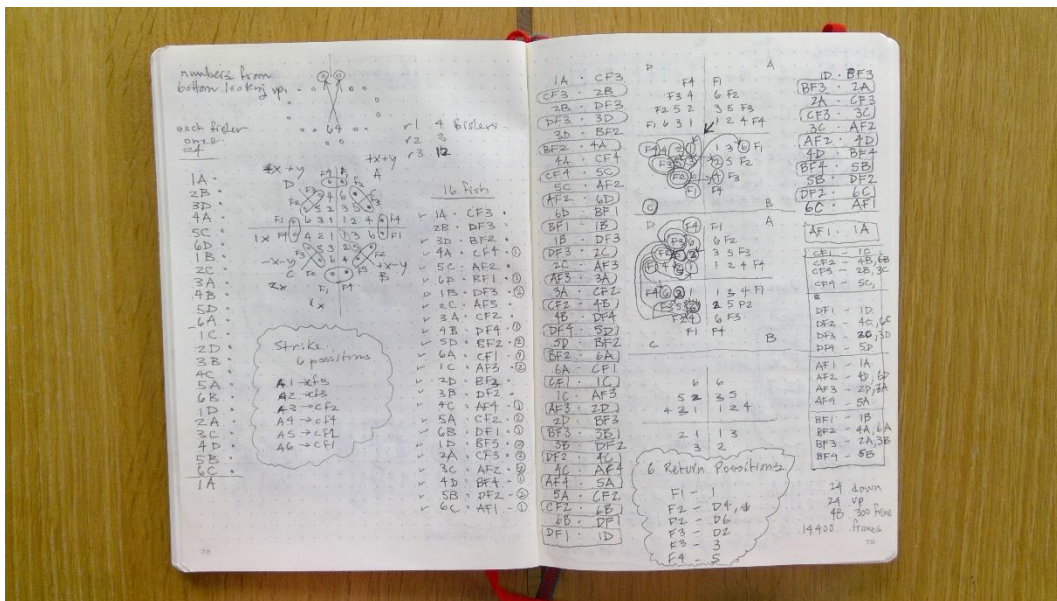 numbers from
bottom looking up.
each fisler
once
24
1A
2B
3D
4A
5C
6D
1B
2C
3A
4B
5D
6A
1C
2D
3B
4C
5A
6B
1D
2A
3C
4D
5B
6C
1A
64
r1 4 fislers
r2 8
r3 12
+x+y
A
D
-x-y
C
+x-y
B
Strike
6 possitions
A4 → cf4
A6 → CF1
16 fish
1A · CF3
2B · DF3
3D · BF2
4A · CF4 · ①
5C · AF2
6D · BF1 · ①
1B · DF3 · ②
2C · AF3
3A · CF2
4B · DF4 · ①
5D · BF2 · ②
6A · CF1 · ①
1C · AF3 · ②
2D · BF3
3B · DF2
4C · AF4 · ①
5A · CF2 · ②
6B · DF1 · ①
1D · BF3 · ②
2A · CF3 · ②
3C · AF2 · ②
4D · BF4 - ①
5B · DF2 - ②
6C · AF1 - ①
76
1A · CF3
CF3 · 2B
2B · DF3
DF3 · 3D
3D · BF2
BF2 · 4A
4A · CF4
CF4 · 5C
5C · AF2
AF2 · 6D
6D · BF1
BF1 · 1B
1B · DF3
DF3 · 2C
2C · AF3
AF3 · 3A
3A · CF2
CF2 · 4B
4B · DF4
DF4 · 5D
5D · BF2
BF2 · 6A
6A · CF1
CF1 · 1C
1C · AF3
AF3 · 2D
2D · BF3
BF3 · 3B
3B · DF2
DF2 · 4C
4C · AF4
AF4 · 5A
5A · CF2
CF2 · 6B
6B · DF1
DF1 · 1D
D A
F4 F1
F3 4 6 F2
F2 5 2 3 5 F3
F1 6 3 1 1 2 4 F4
C B
D A
F4 F1
6 F2
3 5 F3
1 2 4 F4
1 3 4 F1
2 5 F2
6 F3
F1 F4
C B
6 6
5 2 3 5
4 3 1 1 2 4
2 1 1 3
3 2
6 Return Possitions
F1 - 1
F2 - D4
F2 - D6
F3 - D2
F3 - 3
F4 - 5
1D · BF3
BF3 · 2A
2A · CF3
CF3 · 3C
3C · AF2
AF2 · 4D
4D · BF4
BF4 · 5B
5B · DF2
DF2 · 6C
6C · AF1
AF1 · 1A
CF1 - 1C
CF2 - 4B, 6B
CF3 - 2B, 3C
CF4 - 5C
DF1 - 1D
DF2 - 4C, 6C
DF3 - 2C, 3D
DF4 - 5D
AF1 - 1A
AF2 - 4D, 6D
AF3 - 2D, 3A
AF4 - 5A
BF1 - 1B
BF2 - 4A, 6A
BF3 - 2A, 3B
BF4 - 5B
24 down
24 up
48 300 frame
14400 frames